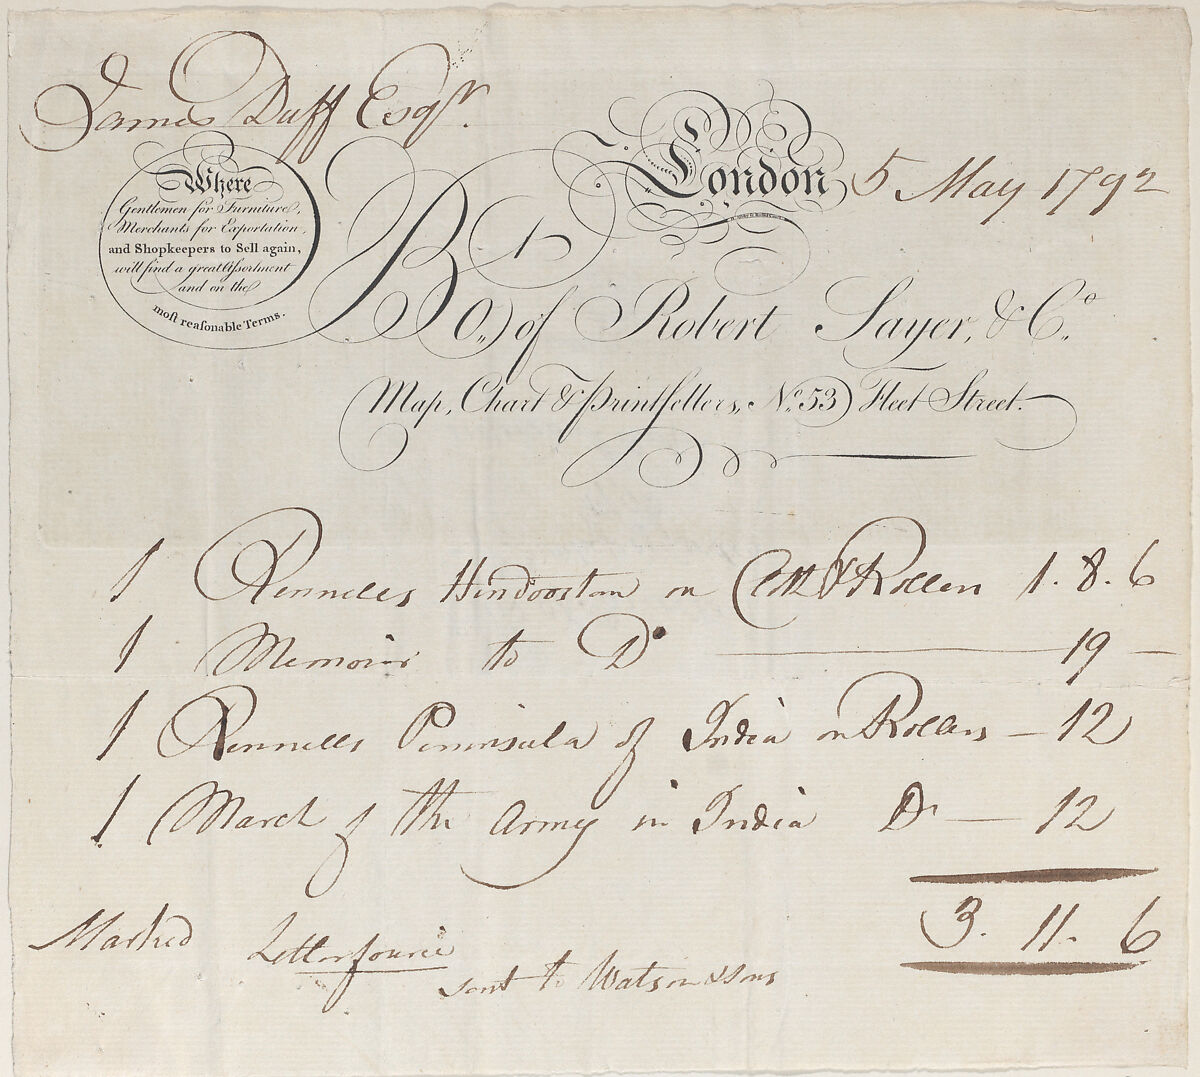 James Duff Esqr.
London 5 May 1792
Where
Gentlemen for Furniture,
Merchants for Exportation,
and Shopkeepers to Sell again,
will find a great Aſsortment
and on the
moſt reaſonable Terms.
Bo. of Robert Sayer, & Co.
Map, Chart & Printſellers, No. 53 Fleet Street.
1 Rennells Hindoostan on & Rollers 1. 8. 6
1 Memoir to Do 19 —
1 Rennells Peninsula of India on Rollers — 12
1 March of the Army in India Do — 12
3. 11. 6
Marked Letterfourie
sent to Watson & Sons